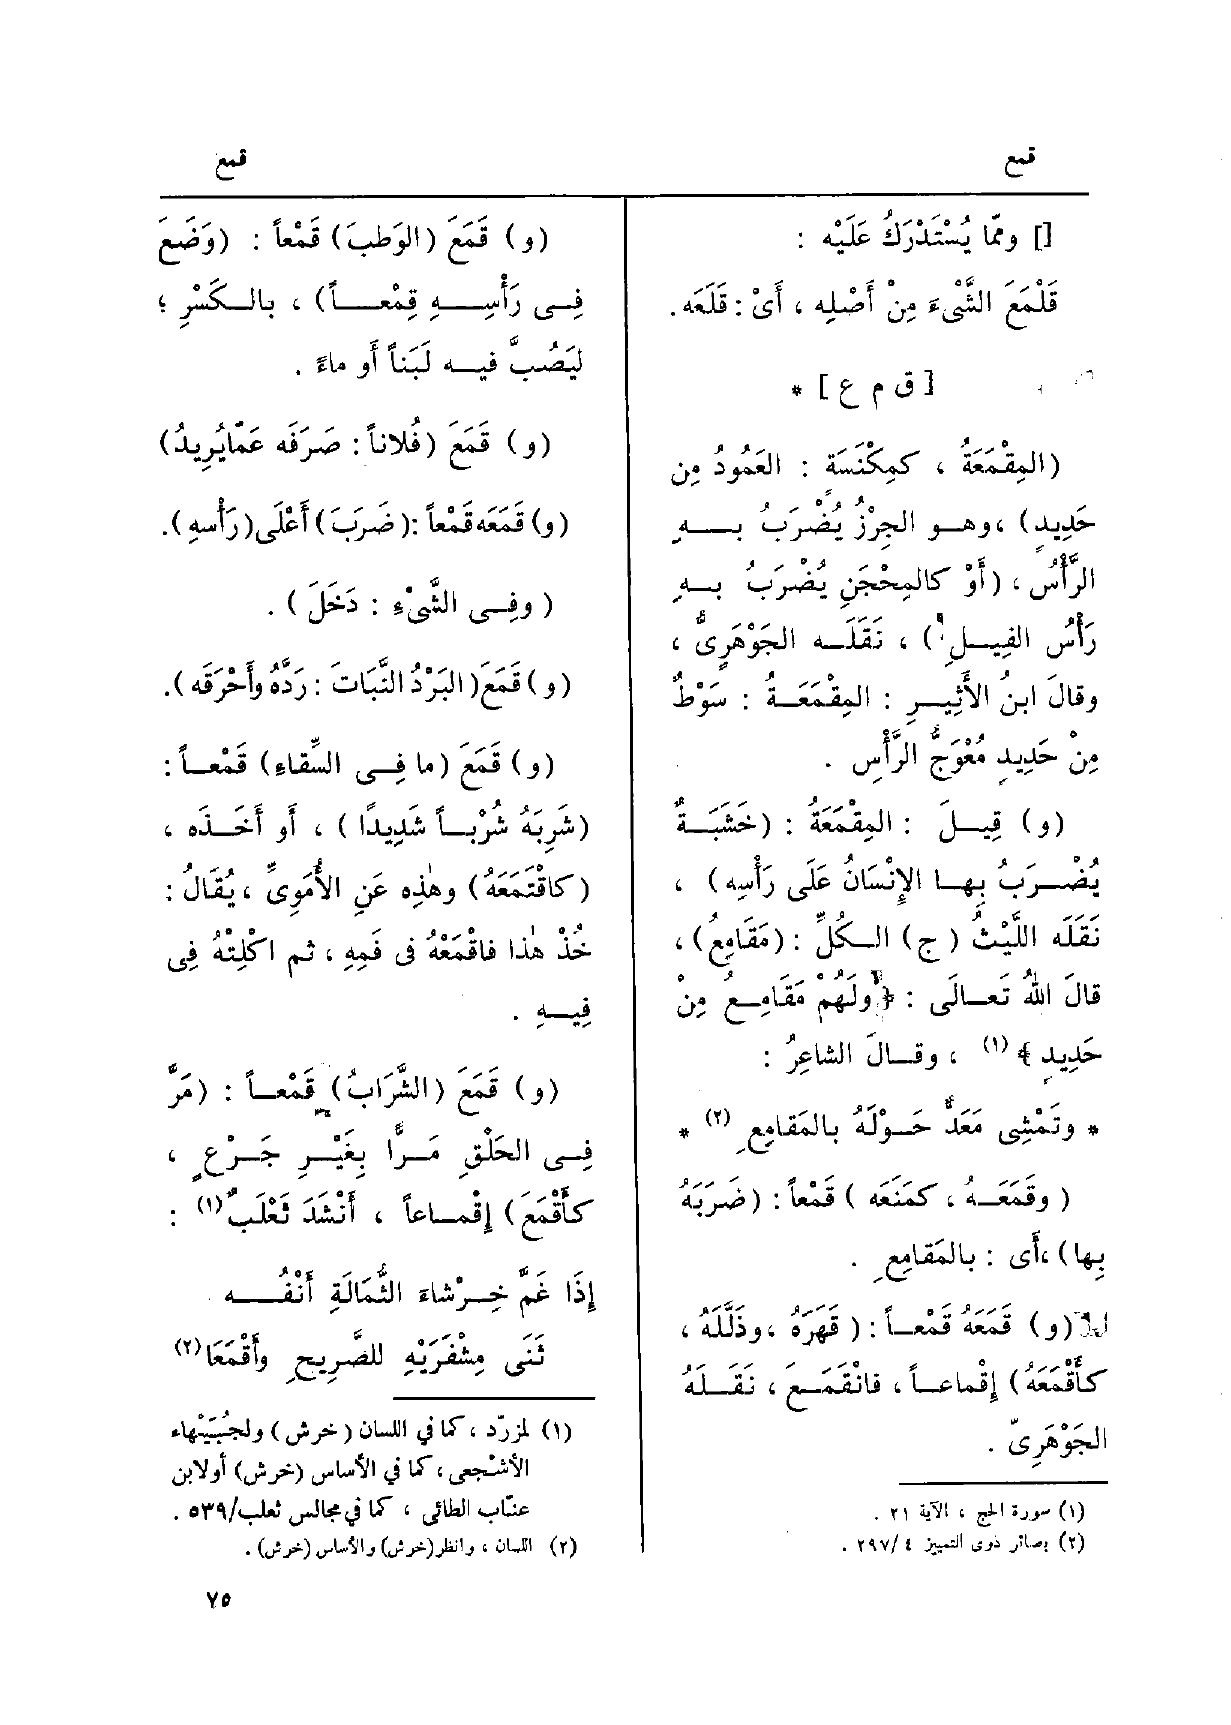 قمع
قمع
[] ومّا يُسْتَدْرَكُ عَلَيْه :
قَلْمَعَ الشَّىْءَ مِنْ أَصْلِه ، أَىْ : قَلَعَه .
[ ق م ع ] *
(المِقْمَعَةُ ، كمِكْنَسَة : العَمُودُ مِن
حَدِيدٍ) ، وهــو الجِرْزُ يُضْرَبُ بــه
الرَّأْسُ ، (أَوْ كالمِحْجَنِ يُضْرَبُ بــه
رَأْسُ الفِيــلِ) ، نَقَلَــه الجَوْهَرِىُّ ،
وقالَ ابنُ الأَثِيــرِ : المِقْمَعَــةُ : سَوْطٌ
مِنْ حَدِيدٍ مُعْوَجُّ الرَّأْسِ .
(و) قِيــلَ : المِقْمَعَةُ : (خَشَبَــةٌ
يُضْــرَبُ بِهــا الإِنْسَانُ عَلَى رَأْسِه) ،
نَقَلَه اللَّيْثُ (ج) الــكُلِّ : (مَقَامِعُ) ،
قالَ اللهُ تَعــالَى : ﴿ولَهُمْ مَقَامِــعُ مِنْ
حَدِيدٍ﴾ (١) ، وقــالَ الشاعِرُ :
* وتَمْشِى مَعَدٌّ حَــوْلَهُ بالمَقامِعِ (٢) *
( وقَمَعَــهُ ، كمَنَعَه ) قَمْعاً : (ضَرَبَهُ
بِها) ،أَى : بالمَقامِعِ .
(و) قَمَعَهُ قَمْعــاً : ( قَهَرَهُ ، وذَلَّلَهُ ،
كأَقْمَعَهُ) إِقْماعــاً ، فانْقَمَــعَ ، نَقَــلَهُ
الجَوْهَرِىّ .
(١) سورة الحج ، الآية ٢١ .
(٢) بصائر ذوى التمييز ٤ /٢٩٧ .
(و) قَمَعَ (الوَطبَ) قَمْعاً : (وَضَعَ
فِــى رَأْسِــهِ قِمْعــاً) ، بالــكَسْرِ ؛
لِيَصُبَّ فيــه لَبَناً أَو ماءً .
(و) قَمَعَ (فُلاناً : صَرَفَه عَمّايُرِيدُ)
(و) قَمَعَه قَمْعاً :( ضَرَبَ ) أَعْلَى (رَأْسهِ).
( وفِــى الشَّىْءِ : دَخَلَ ) .
(و) قَمَعَ( البَرْدُ النَّبَاتَ : رَدَّهُ وأَحْرَقَه ).
(و) قَمَعَ (ما فِــى السِّقاءِ) قَمْعــاً :
(شَرِبَهُ شُرْبــاً شَدِيدًا ) ، أَو أَخَــذَه ،
(كاقْتَمَعَهُ) وهٰذِه عَنِ الأُمَوِىِّ ، يُقَالُ :
خُذْ هٰذا فاقْمَعْهُ فى فَمِهِ ، ثم اكْلِتْهُ فِى
فِيــهِ .
(و) قَمَعَ (الشَّرَابُ) قَمْعــاً : (مَرَّ
فِــى الحَلْقِ مَــرًّا بِغَيْــرِ جَــرْعٍ ،
كأَقْمَعَ) إِقْمــاعاً ، أَنْشَدَ ثَعْلَبٌ(١) :
إِذَا غَمَّ خِــرْشاءَ الثُّمَالَةِ أَنْفُــــه
ثَنَى مِشْفَرَيْهِ للصَّرِيحِ وأَقْمَعَا(٢)
(١) لمزرّد ، كما في اللسان (خرش) ولجُبَيْهاء
الأشْجعى ، كما في الأساس (خرش) أولابن
عنّاب الطائى ، كما في مجالس ثعلب/٥٣٩ .
(٢) اللسان ، وانظر (خرش) والأساس (خرش) .
٧٥